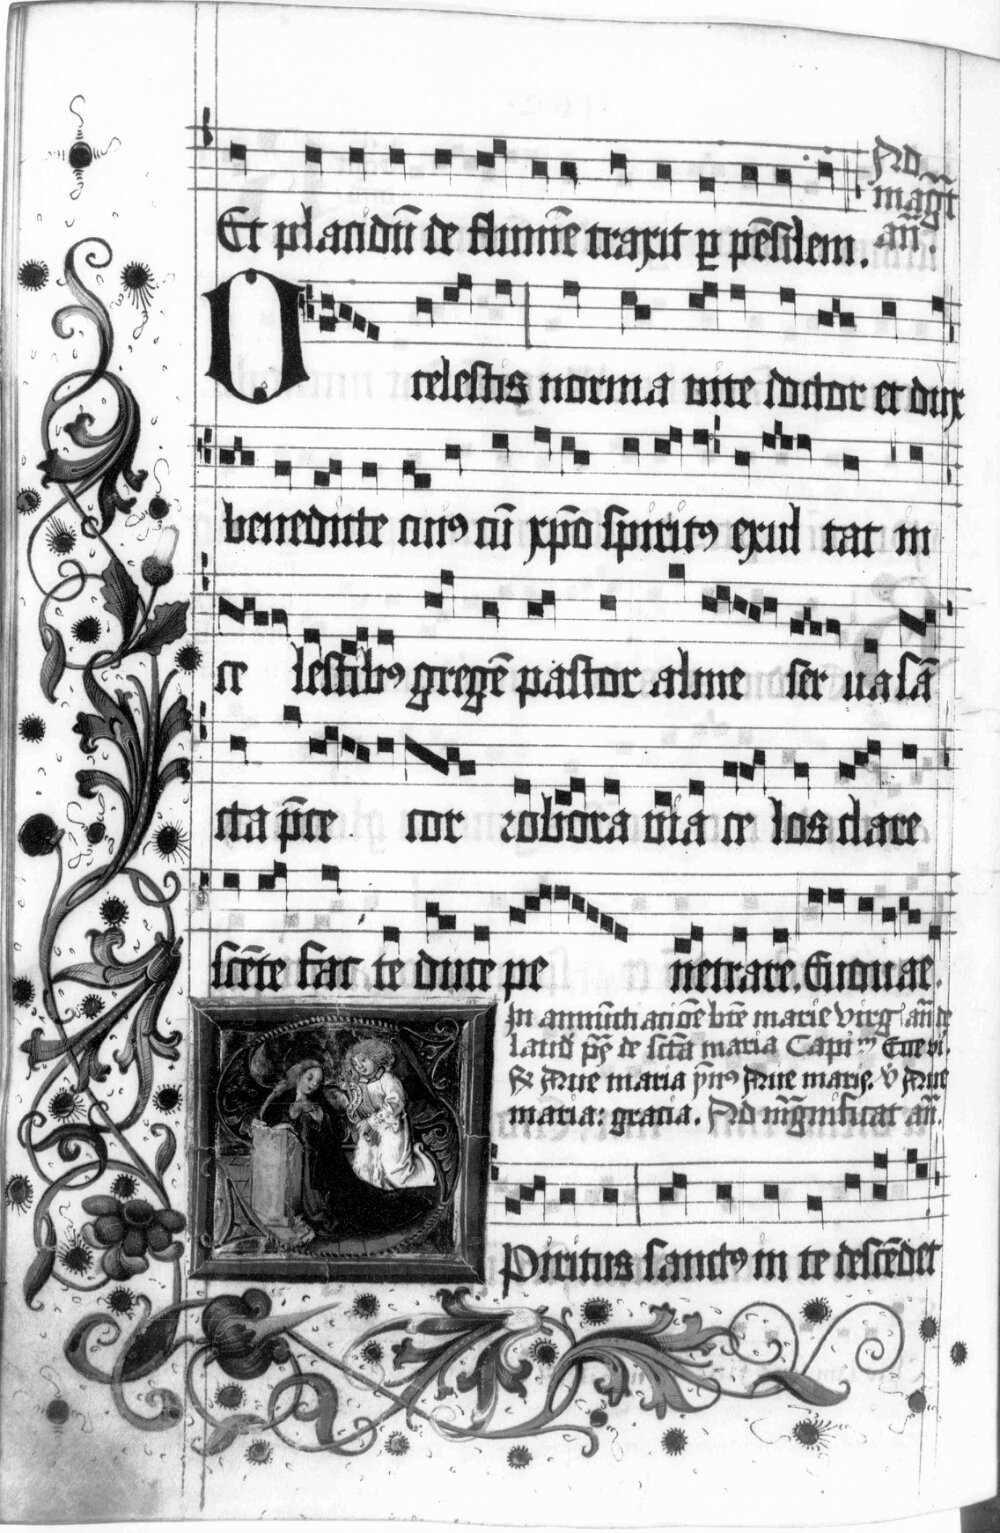 Et placidū de flumīe traxit p pēsilem.
Ad
magt
añ.
O celestis norma vite doctor et dux
benedicte cuiꝰ cū xp̄o spiritꝰ exul tat in
ce lestibꝰ gregē pastor alme ser ua sā
cta p̄ce cor robora via ce los clare
scēte fac te duce pe netrare. Euouae.
In annūciacōe btē marie virgꝭ añ de
laud pē de sctā maria Capi Ecce vi.
R Aue maria Aue marie. v̄ Aue
maria: gracia. Ad māgnificat añ.
Spiritus sanctꝰ in te descēdet